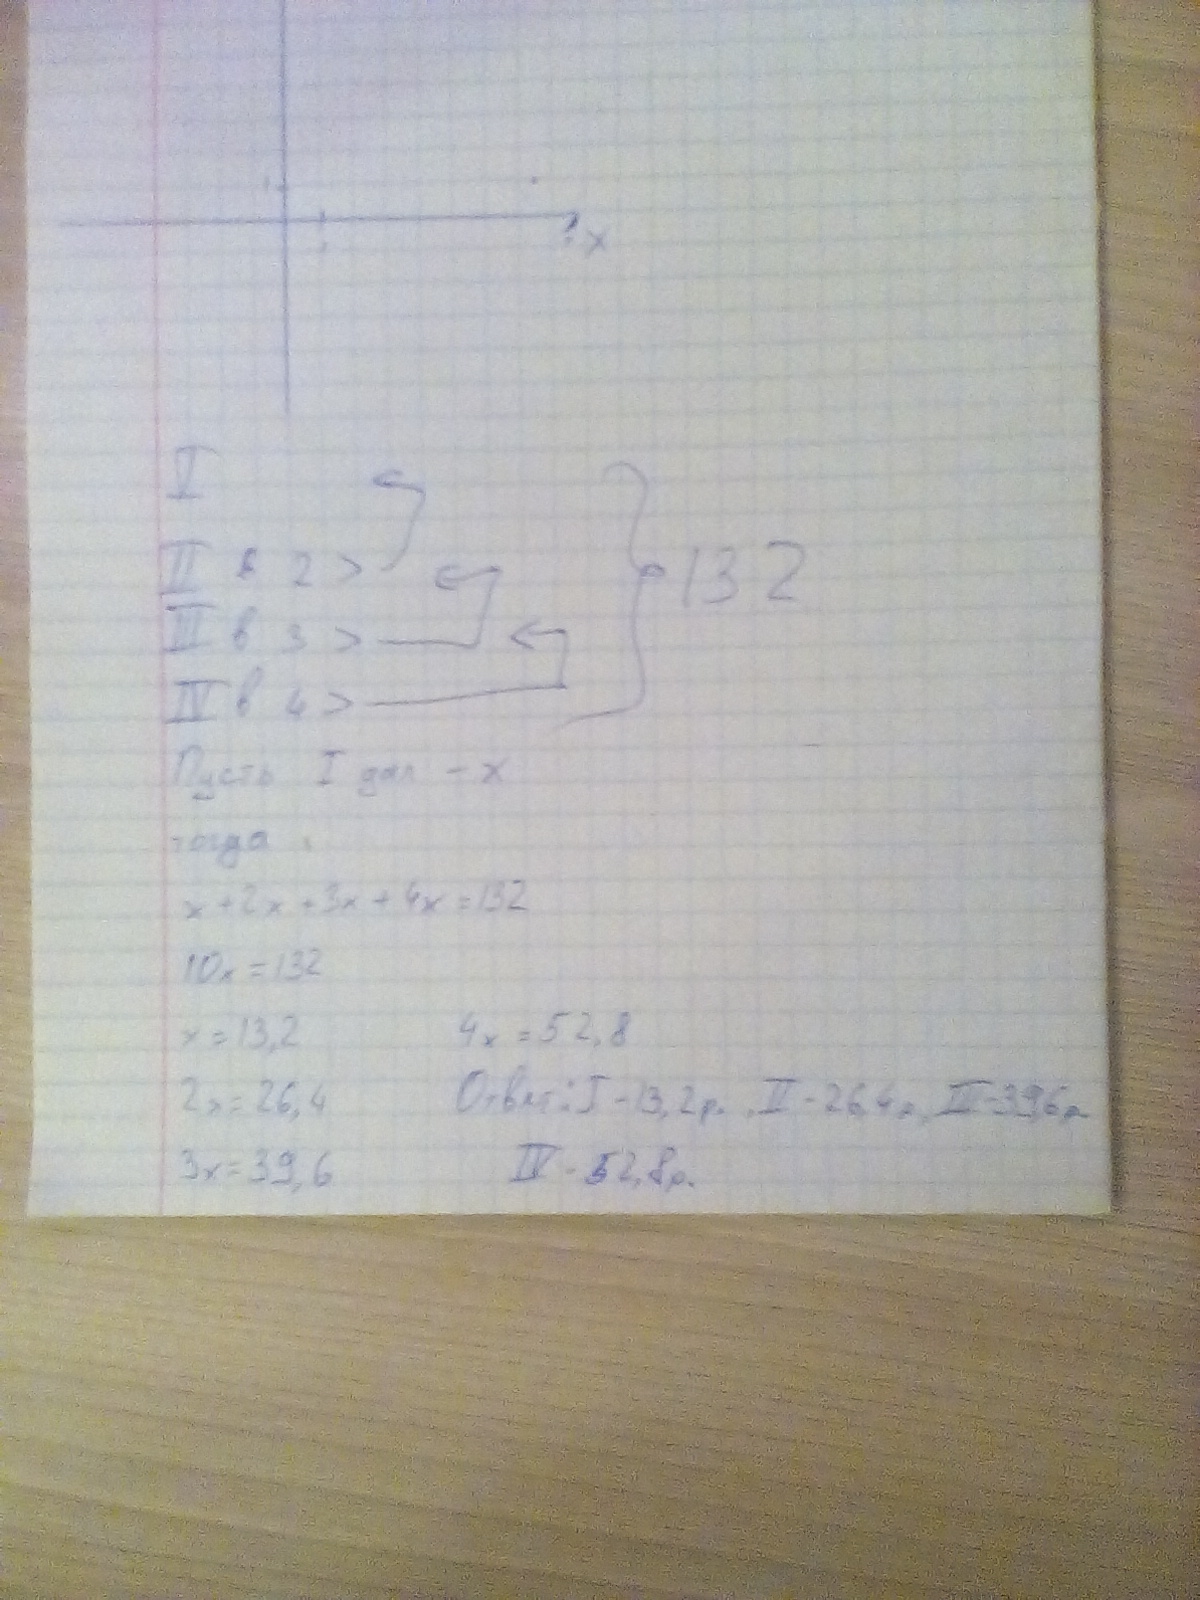 x
I
II в 2 >
III в 3 >
IV в 4 >
132
Пусть I дал - x
тогда :
x + 2x + 3x + 4x = 132
10x = 132
x = 13,2
2x = 26,4
3x = 39,6
4x = 52,8
Ответ: I - 13,2р., II - 26,4р, III - 39,6р
IV - 52,8р.